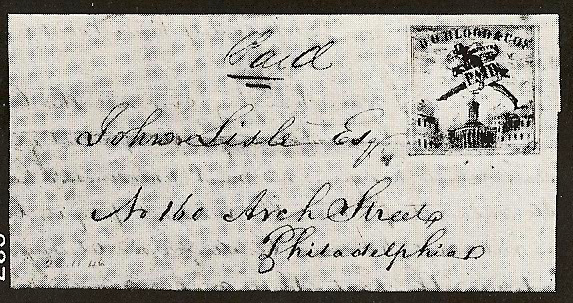 Paid
D.O. BLOOD & CO'S
PAID
John Lisle Esq
No 160 Arch Street
Philadelphia